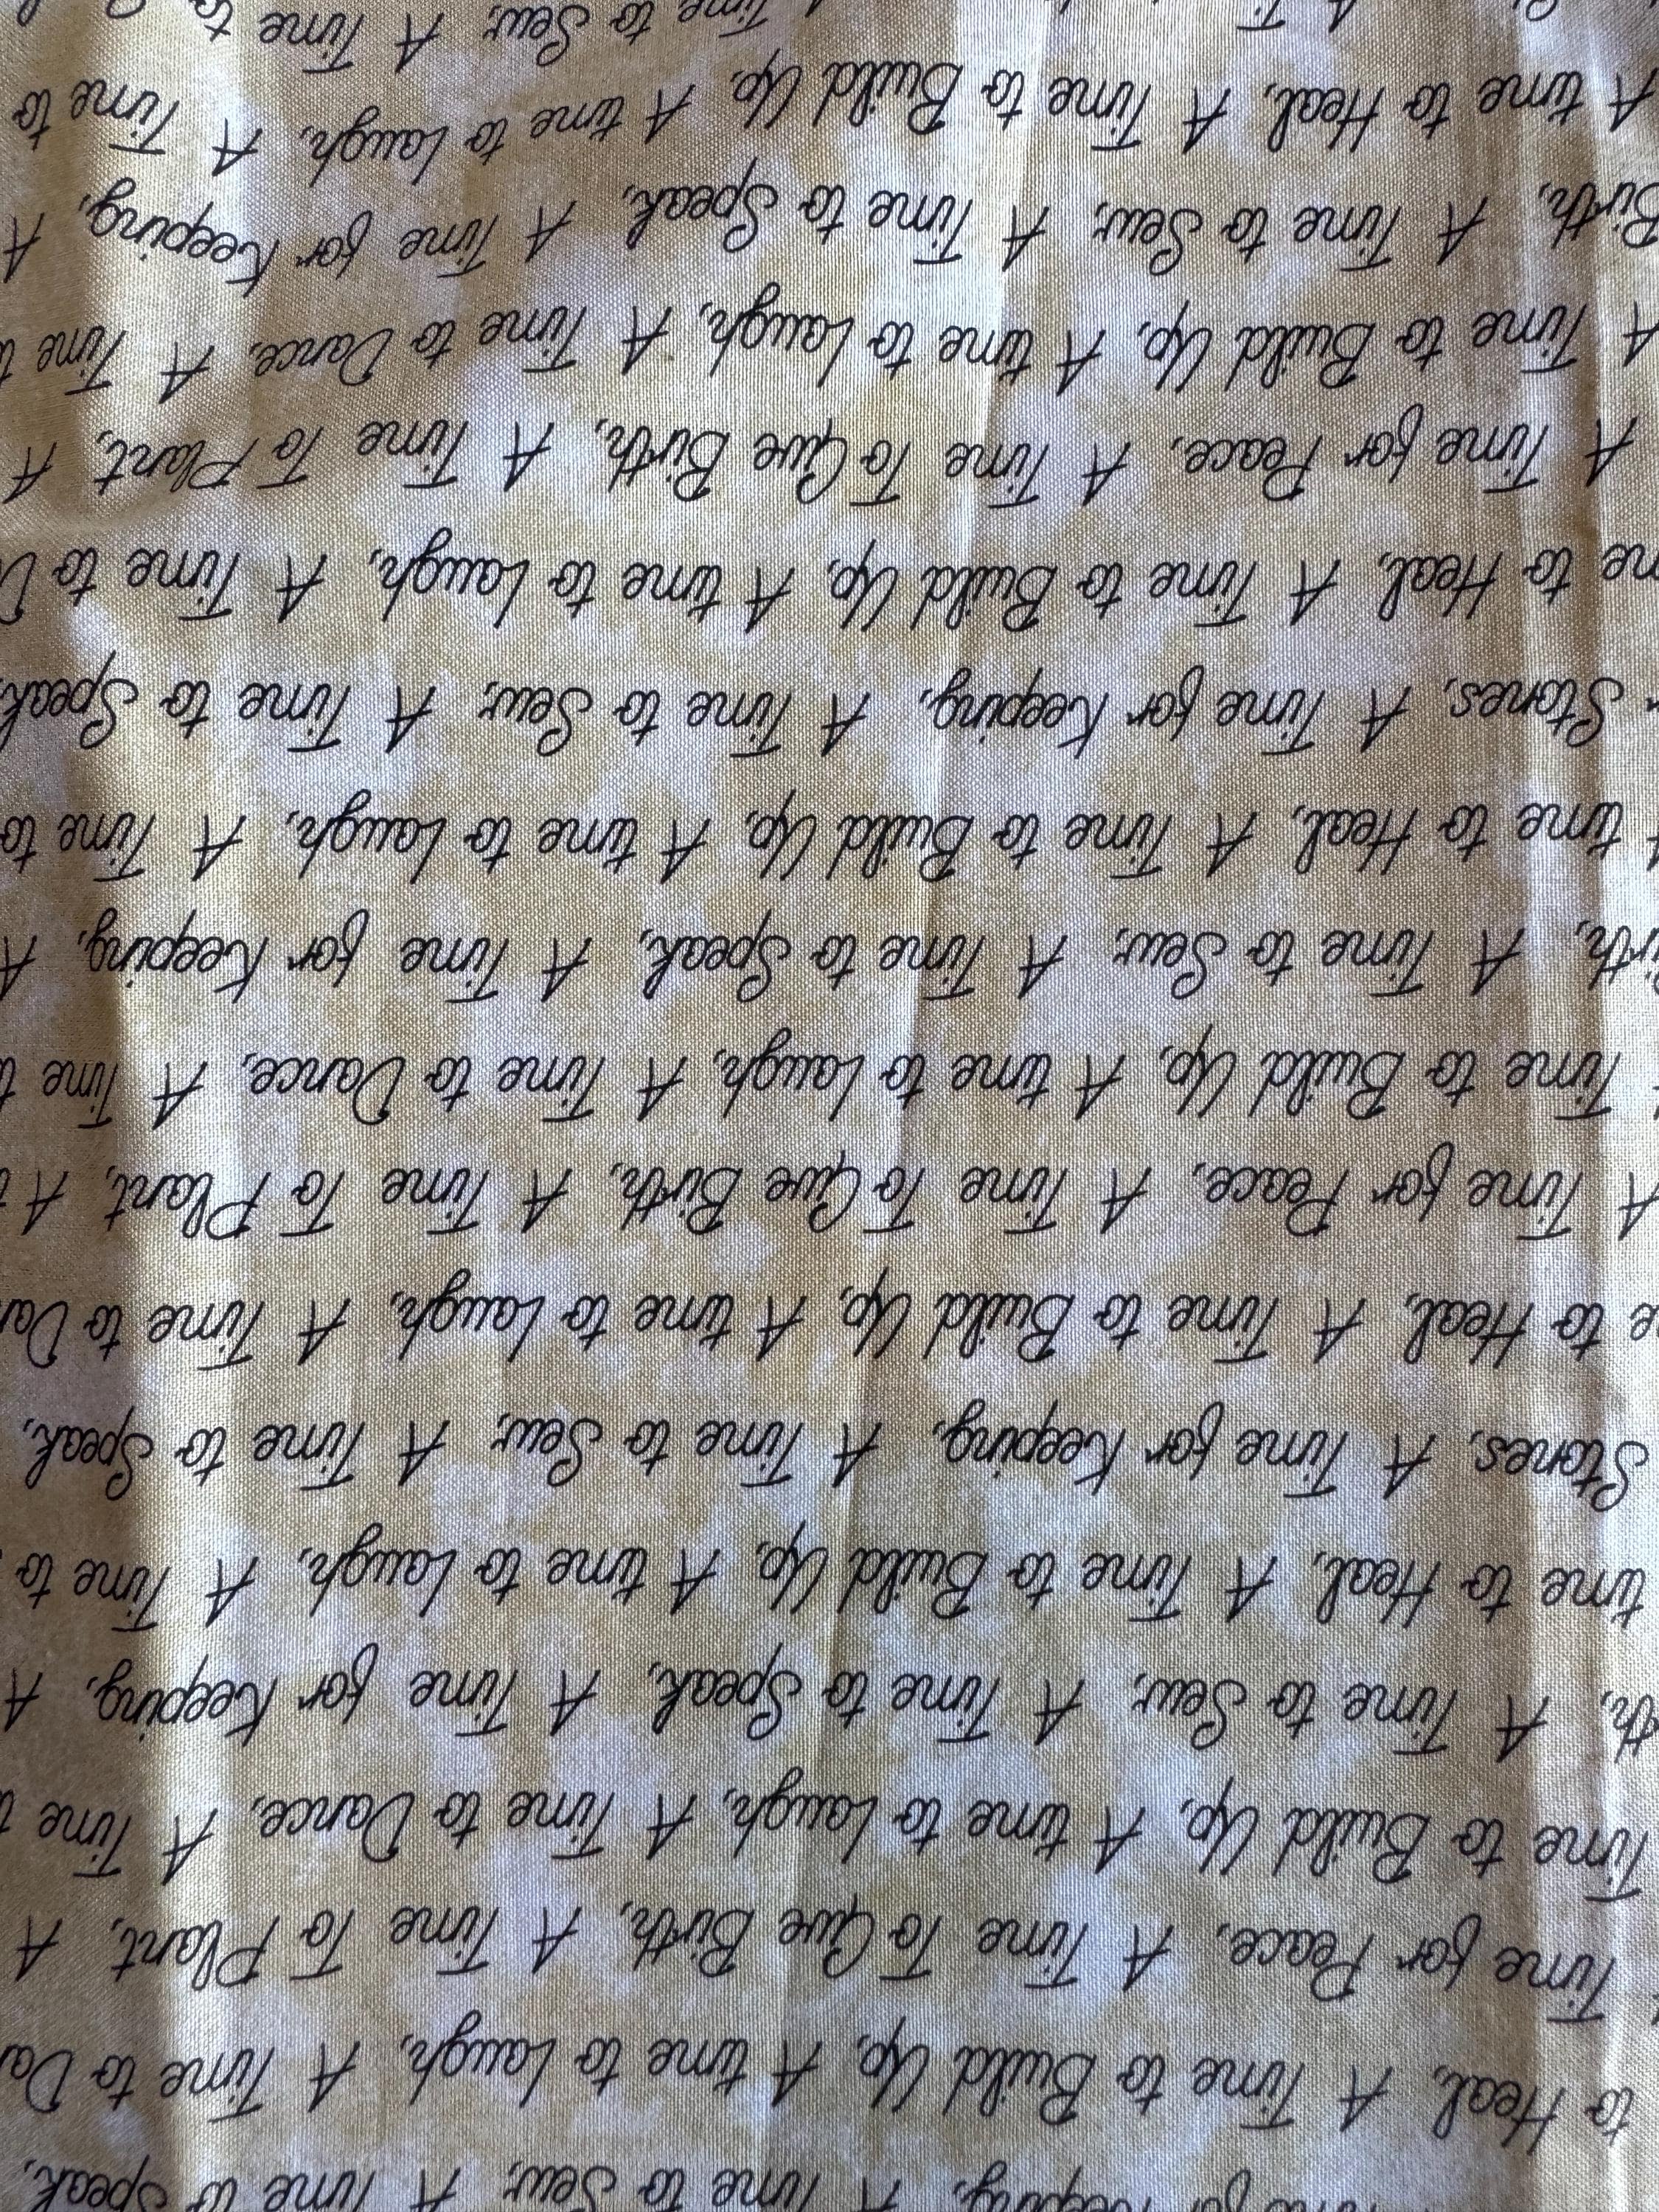 to Sew, A Time to Speak,
to Heal, A Time to Build Up, A time to Laugh, A Time to
Time for Peace, A Time To Give Birth, A Time To Plant, A
Time to Build Up, A time to Laugh, A Time to Dance, A Time
A Time to Sew, A Time to Speak, A Time for Keeping, A
time to Heal, A Time to Build Up, A time to Laugh, A Time to
Stones, A Time for Keeping, A Time to Sew, A Time to Speak,
to Heal, A Time to Build Up, A time to Laugh, A Time to
A Time for Peace, A Time To Give Birth, A Time To Plant, A
Time to Build Up, A time to Laugh, A Time to Dance, A Time
A Time to Sew, A Time to Speak, A Time for Keeping, A
time to Heal, A Time to Build Up, A time to Laugh, A Time to
Stones, A Time for Keeping, A Time to Sew, A Time to Speak
to Heal, A Time to Build Up, A time to Laugh, A Time to
A Time for Peace, A Time To Give Birth, A Time To Plant, A
A Time to Build Up, A time to Laugh, A Time to Dance, A Time
Birth, A Time to Sew, A Time to Speak, A Time for Keeping, A
A time to Heal, A Time to Build Up, A time to Laugh, A Time to
Time to Sew, A Time